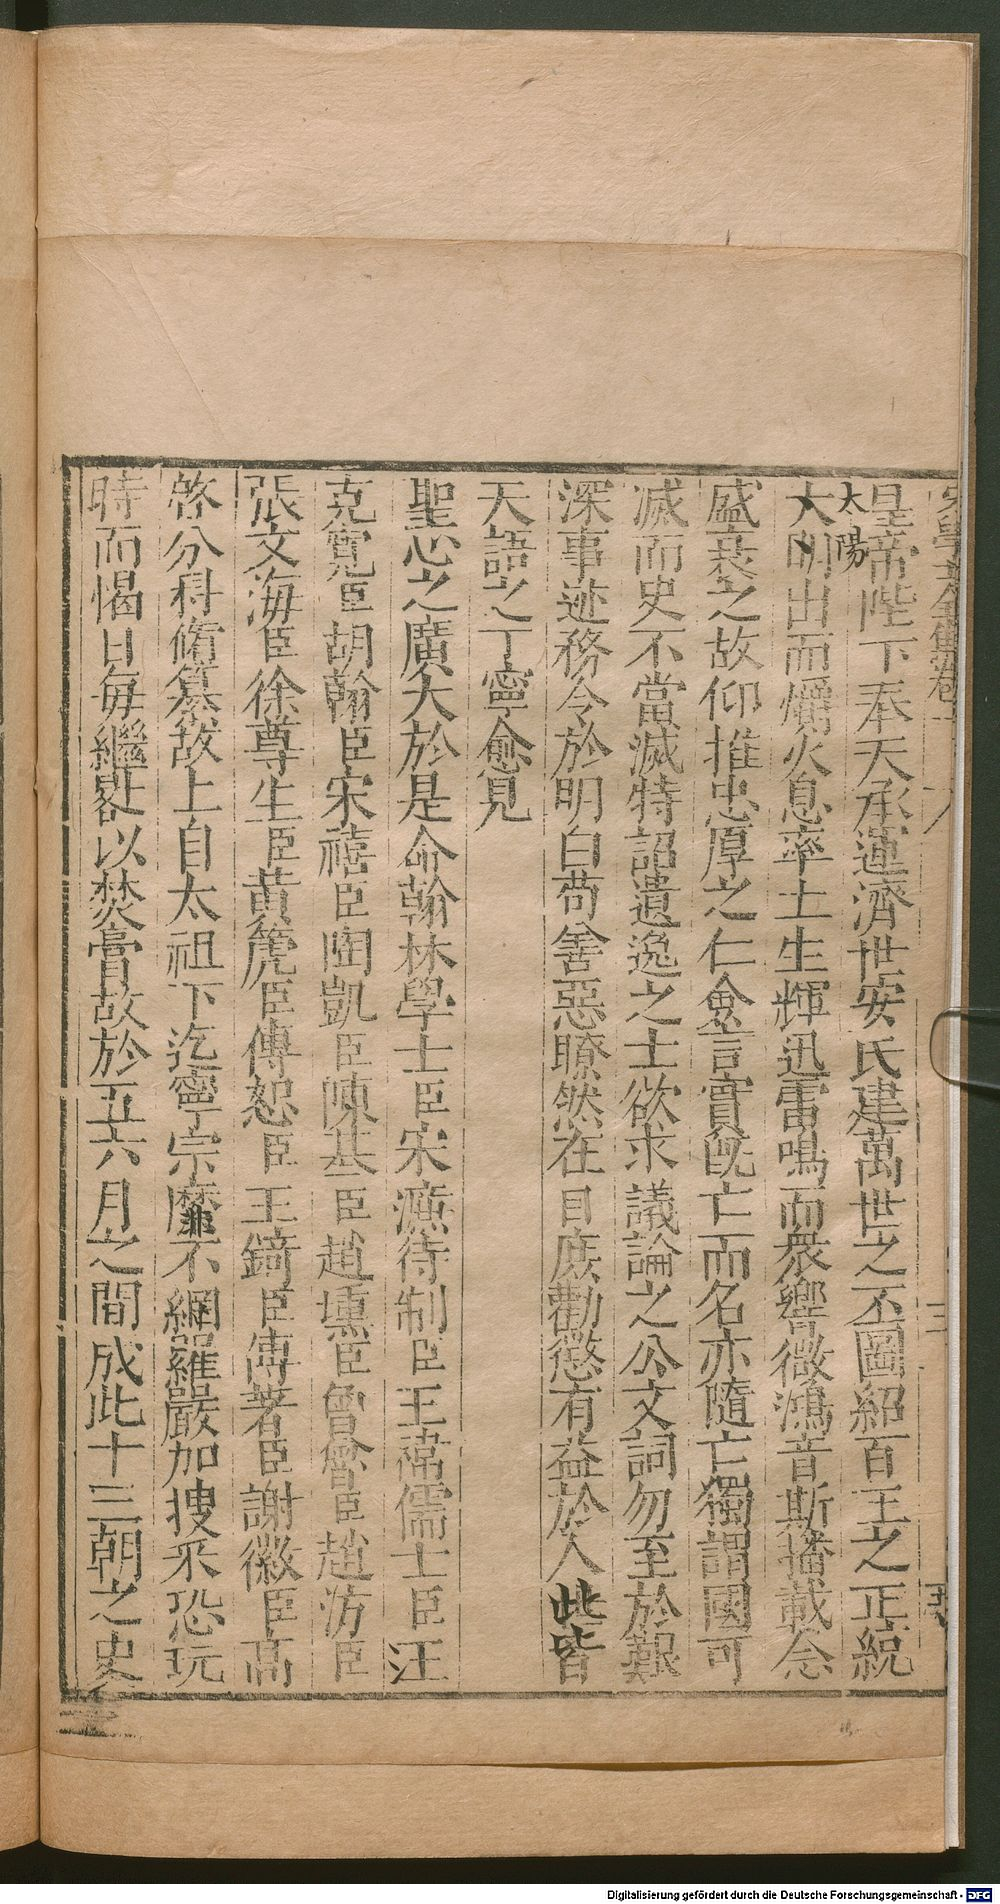 皇帝陛下奉天承運濟世安民建萬世之丕圖紹百王之正統
大明出而爝火息率土生輝迅雷鳴而衆響微鴻音斯播載念
太陽
盛衰之故仰推忠厚之仁僉言實旣亡而名亦隨亡獨謂國可
滅而史不當滅特詔遺逸之士欲求議論之公文詞勿至於艱
深事迹務令於明白苟善惡瞭然在目庶勸懲有益於人此皆
天語之丁寧愈見
聖心之廣大於是命翰林學士臣宋濂待制臣王褘儒士臣汪
克寬臣胡翰臣宋禧臣陶凱臣陳基臣趙壎臣曾魯臣趙汸臣
張文海臣徐尊生臣黃箎臣傅恕臣王錡臣傅著臣謝徽臣高
啓分科脩纂故上自太祖下迄寧宗靡不網羅嚴加搜采恐玩
時而愒日每繼晷以焚膏故於五六月之間成此十三朝之史
Digitalisierung gefördert durch die Deutsche Forschungsgemeinschaft - DFG